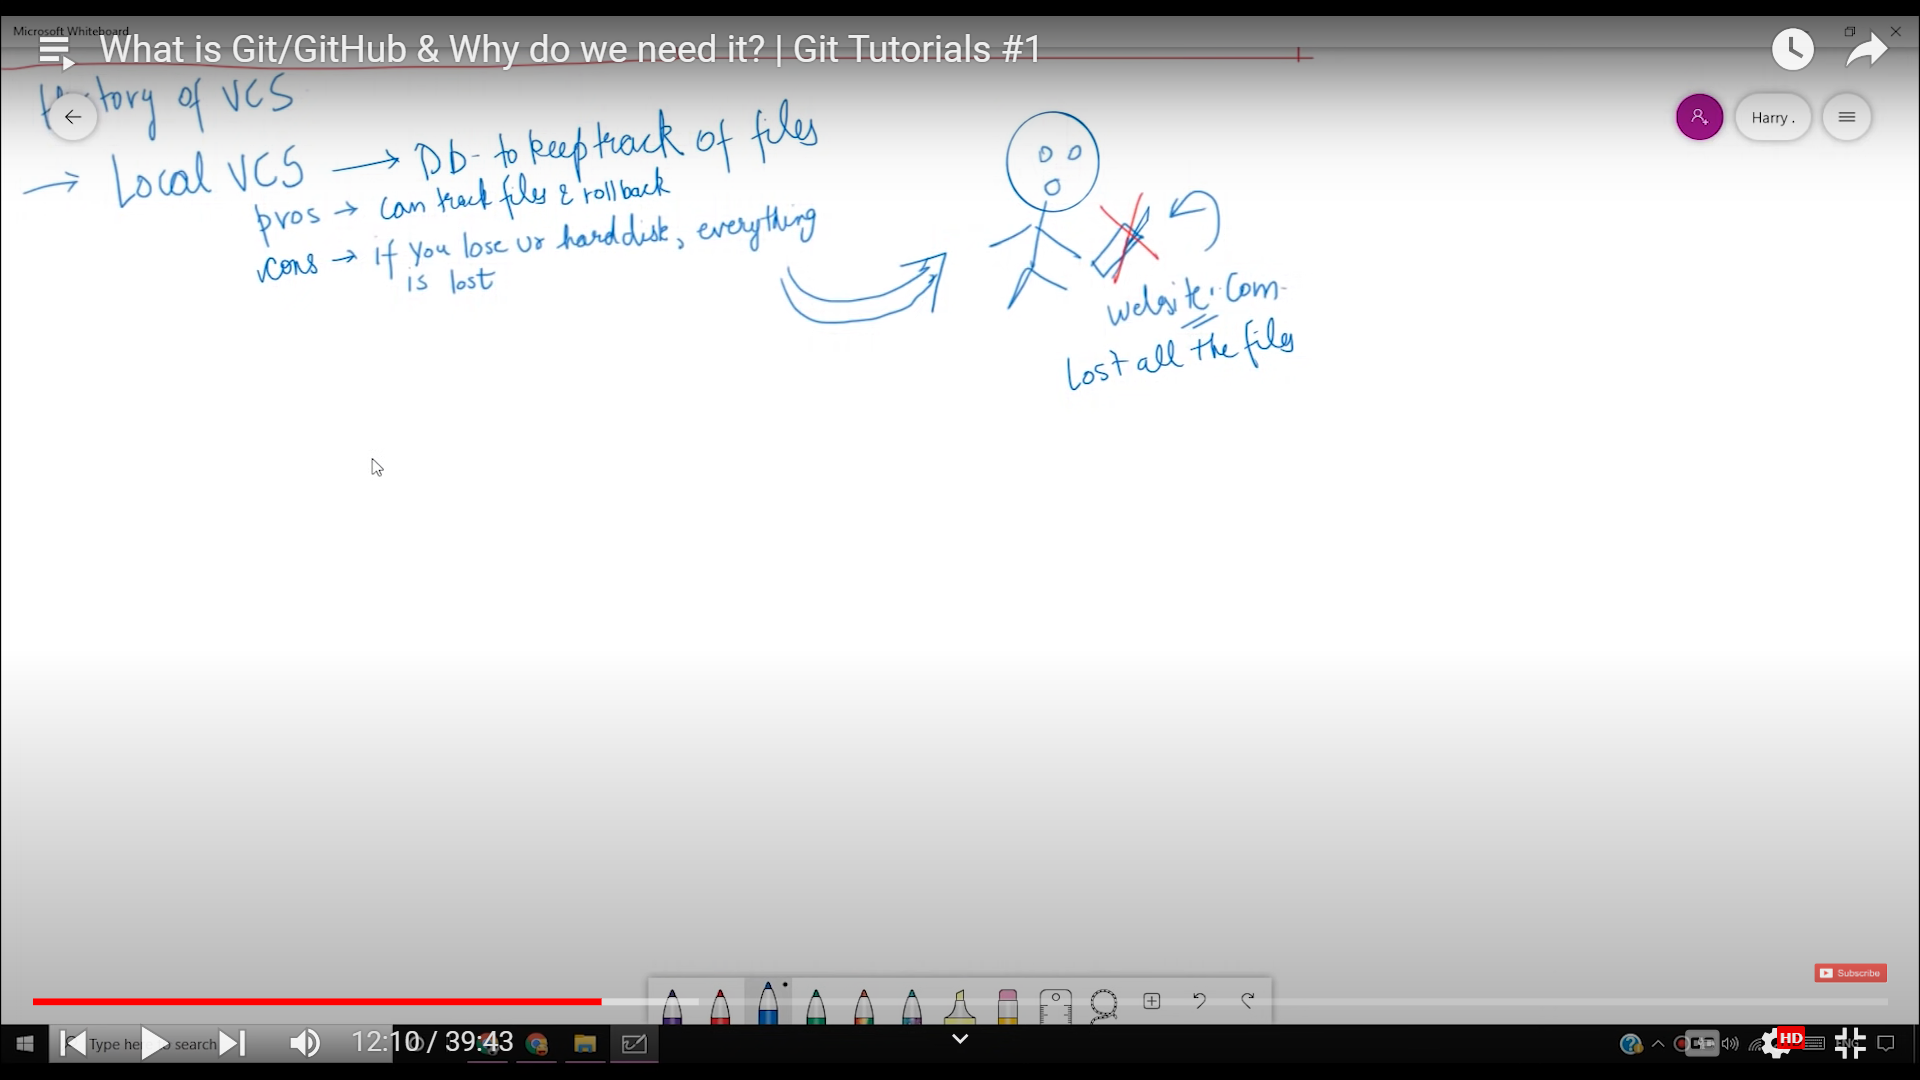 Microsoft Whiteboard
What is Git/GitHub & Why do we need it? | Git Tutorials #1
History of VCS
Harry .
→ Local VCS → Db - to keep track of files
pros → can track files & rollback
cons → if you lose ur harddisk, everything
is lost
website.com
Lost all the files
Subscribe
12:10 / 39:43
Type here to search
HD
ENG